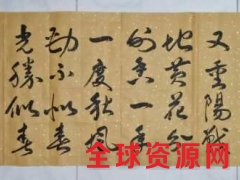 又重陽戰
地黄花分
外香一年
一度秋风
劲不似春
光勝似春
全球资源网